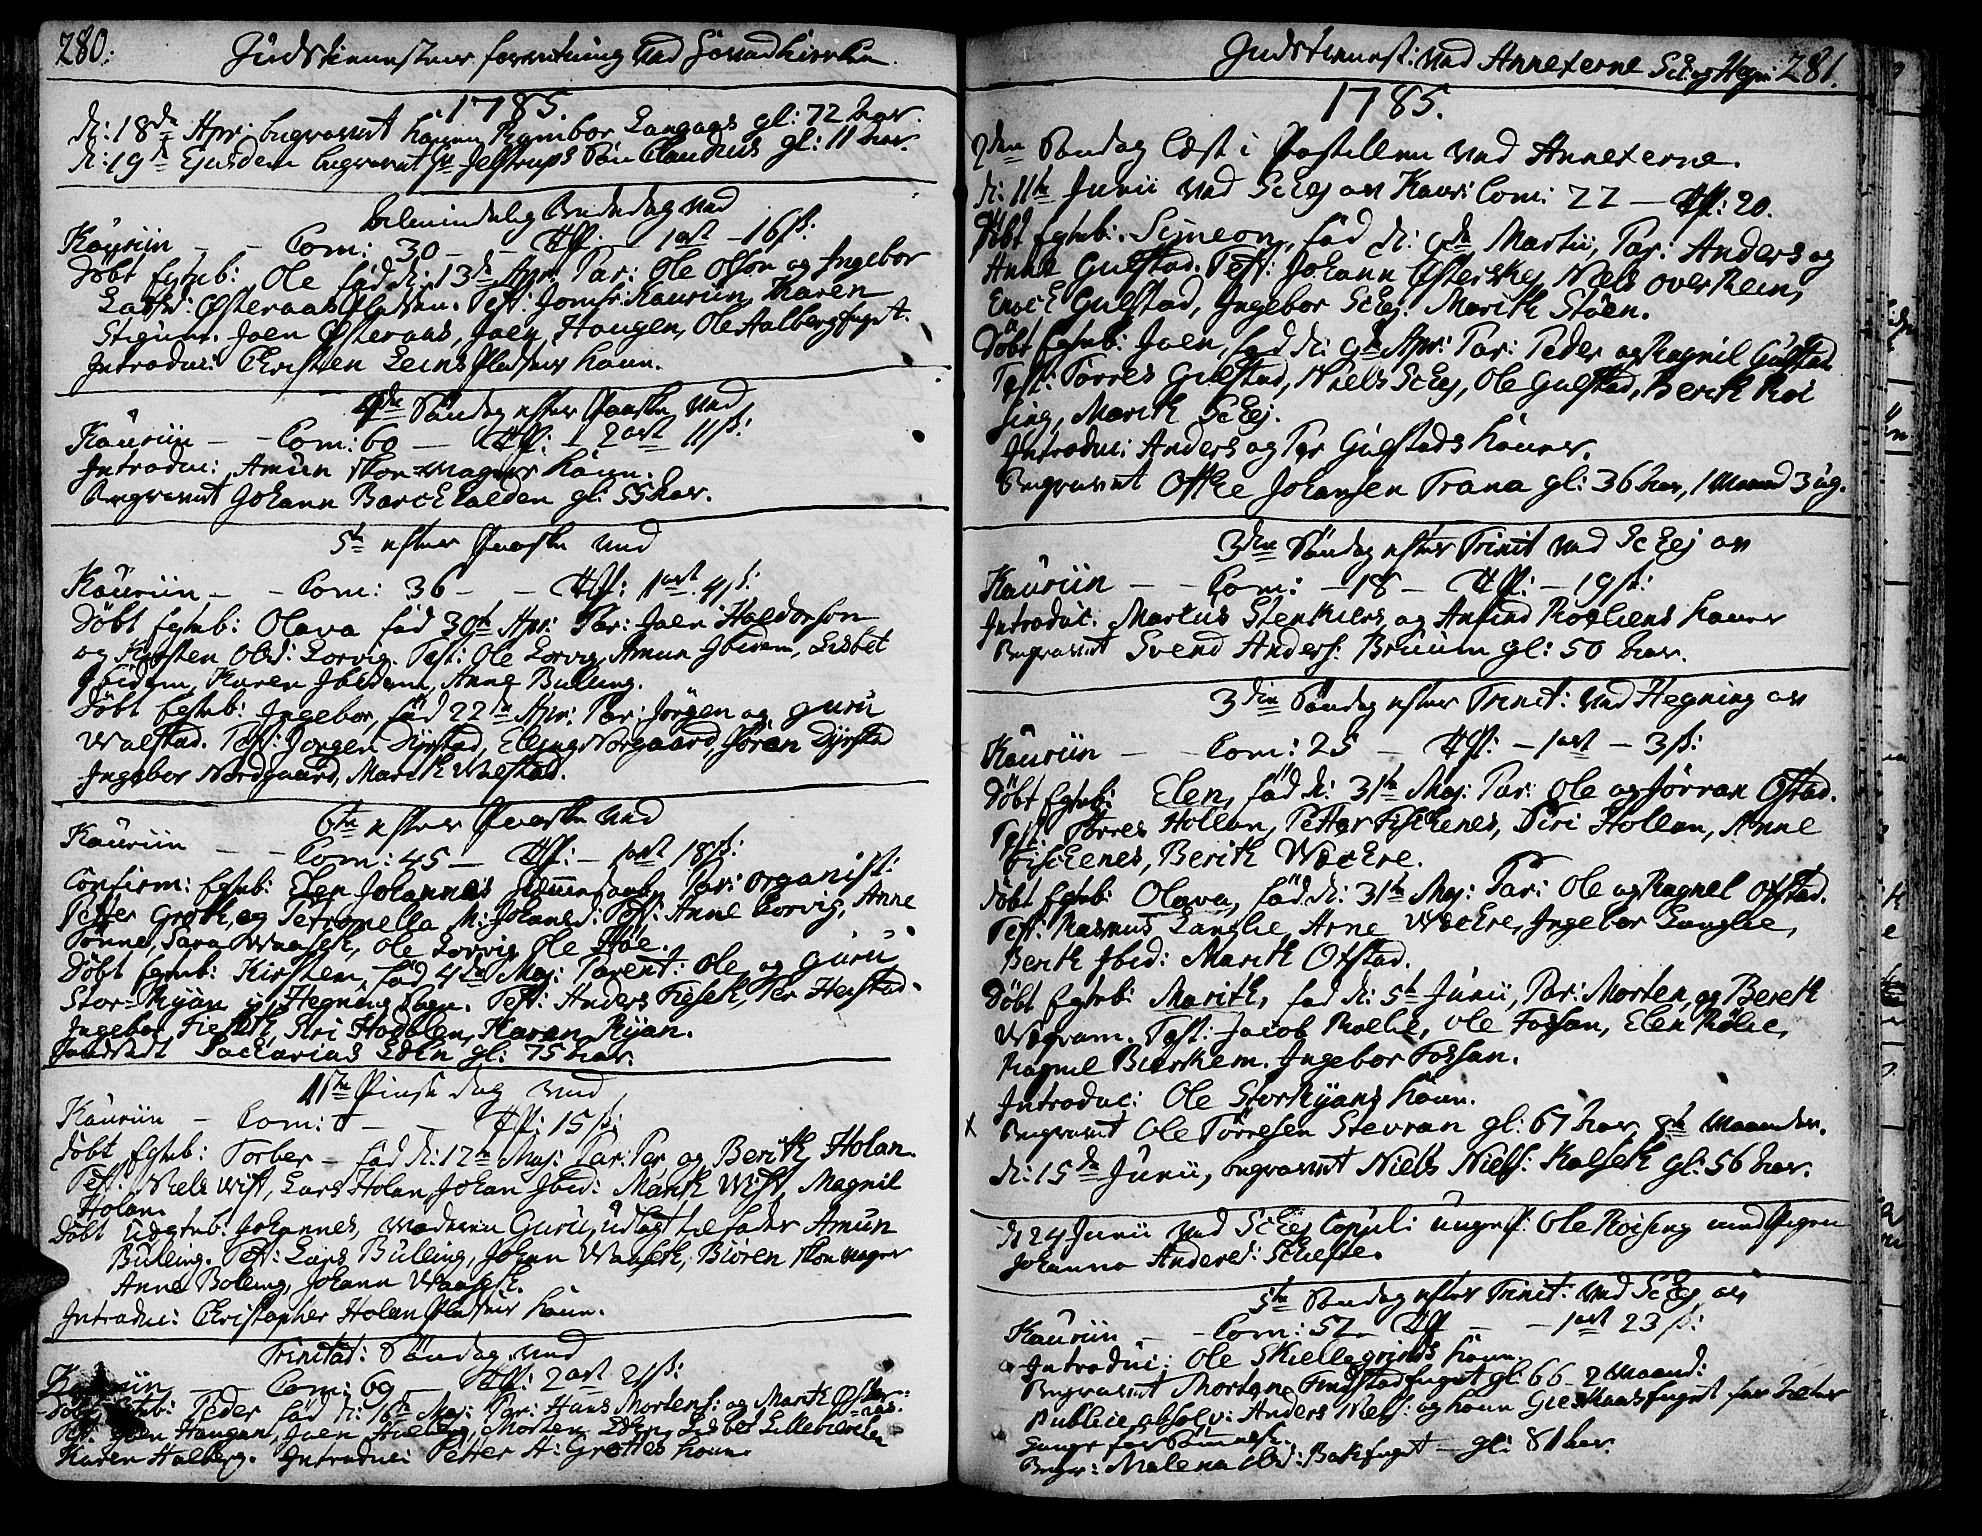 280. Gudstienestens forretning ved Hovedkirken
1785.
d: 18de Apr: begravent konen Rambor Langaas gl: 72 Aar.
d: 19de Ejusdem begravent Hr Jelstrups Søn Claudius gl: 11 Aar.
Almindelig Bededag ved
Kauriin – – Com: 30 – – Off: 1ort – 16s:
Døbt Egteb: Ole fød d: 13de Apr: Par: Ole Olson og Ingebor
Larsd: Østeraas Pladsen. Test: Jomfr: Kauriin, Karen
Stigum. Joen Østeraas, Joen Haugen, Ole Aalberg
Introduc: Christen Leins Pladses kone.
4de Søndag efter Paaske ved
Kauriin – – Com: 60 – Off: – 2ort 11s:
Introduc: Amun Skomagers kone.
Begravent Johann Barck Halden gl: 55 Aar.
5te efter Paaske ved
Kauriin – – Com: 36 – – Off: 1ort. 4s:
Døbt Egteb: Olava fød 30te Apr: Par: Joen Haldorson
og Kirsten Olsd: Lorvig. Test: Ole Lorvig, Amun Ibidem, Lisbet
Ibidem, Karen Ibidem, Anne Bulling.
Døbt Egteb: Ingebor, fød 22de Apr: Par: Jørgen og Guru
Walstad. Test: Jørgen Dyrstad, Elling Norgaard, Søren Dyrstad
Ingebor Nordgaard, Marith Walstad.
6te efter Paaske ved
Kauriin – – Com: 45 – Off: – 1ort 18s:
Confirm: Egteb: Elen Johannes Hiemmedøbt, Par: Organist:
Petter Groth, og Petronella M: Johansd: Test: Anne Lorvig, Anne
Tønne, Sara Waasek, Ole Lorvig, Ole Støe.
Døbt Egteb: Kirsten, fød 4de Maj: Parent: Ole og Guru
Stor-Ryan i Hegning Sogn. Test: Anders Fiesek, Per Heistad.
Ingebor Fiesek, Siri Hodølen, Karen Ryan.
Jordfæstet Sacharias Edin gl: 75 Aar.
1ste Pinse dag ved
Kauriin – Com: 0 – – Off: 15s:
Døbt Egteb: Torber – fød d: 12te Maj: Par: Per og Berith Holan.
Test: Niels Wist, Lars Holan, Johan Ibid: Marith Wist, Magnil
Holan.
Døbt Uægteb: Johannes, Moderen Guru, udlagt til fader Amun
Bulling. Test: Lars Bulling, Johan Waasek, Biøren Skomager
Anne Boling, Johann Waasek.
Introduc: Christopher Holan Pladses kone.
Trinitat: Søndag ved
Kauriin – – Com: 69 – Off: 2ort 21s:
Døbt Egteb: Peder fød d: 16te Maj: Par: Hans Mortens: og Marith Øster-
aas:
Test: Joen Haugan, Joen Aalberg, Morten Edin, Lisbet Lilleberelen
Karen Halberg. Introduc: Petter A: Grottes kone.
Gudstienest: ved Annexerne Sk: og Hegn: 281.
1785.
2den Søndag læst i Postillen ved Annexerne.
d: 11te Junii ved Skej av Kaur: Com: 22 – Off: 20.
Døbt Egteb: Simeon, fød d: 6te Martii, Par: Anders og
Anne Gulstad. Test: Johann Østerskej, Niels Overrein,
Enock Gulstad, Ingebor Skej. Marith Støen.
Døbt Egteb: Joen, fød d: 9de Apr: Par: Peder og Ragnil Gulstad
Test: Torres Gulstad, Niels Skej, Ole Gulstad, Berith Roi
sing, Marith Skej.
Introduc: Anders og Per Gulstads koner.
Begravent Offke Johansen Trana gl: 36 Aar, 1 Maaned 3 ug.
3den Søndag efter Trinit ved Skej av
Kauriin – – Com: – 18 – Off: – 19s:
Introduc: Marcus Stenkiers og Anfind Roeliens koner
Begravent Svend Anders: Bruum gl: 50 Aar.
3die Søndag efter Trinit: ved Hegning av
Kauriin – – Com: 25 – Off: – 1ort – 3s:
Døbt Egteb: Elen, fød d: 31te Maj: Par: Ole og Jørran Ofstad.
Test: Torres Hollan, Petter Fiskenes, Siri Hollan, Anne
Fiskenes, Berith Wæckre.
Døbt Egteb: Olava, fød d: 31te Maj: Par: Ole og Ragnel Ofstad.
Test: Rasmus Langlie, Arne Wæckre, Ingebor Langlie,
Berith Ibid: Marith Ofstad.
Døbt Egteb: Marith, fød d: 5te Junii, Par: Morten og Bereth
Wogram. Test: Jacob Roelie, Ole Fossan, Elen Rølie,
Ragnil Biørkem. Ingebor Fossan.
Introduc: Ole Storryans kone.
x Begravent Ole Torresen Stevran gl: 67 Aar, 8te Maaneder.
d: 15de Junii, begravent Niels Niels: Kalsek gl: 56 Aar.
d: 24 Junii ved Skej Copuli: ungk: Ole Roising med Pigen
Johanna Andersd: Schefte.
5te Søndag efter Trinit: ved Skej av
Kauriin – – Com: 52 – Off – – 1ort 23s:
Introduc: Ole Skiellegrinds kone.
Begravent Mortene gl: 66 – 2 Maand:
Publice absolv: Anders Niels: og kone
gange for
Begr: Malena Olsd: – gl: 81 Aar.